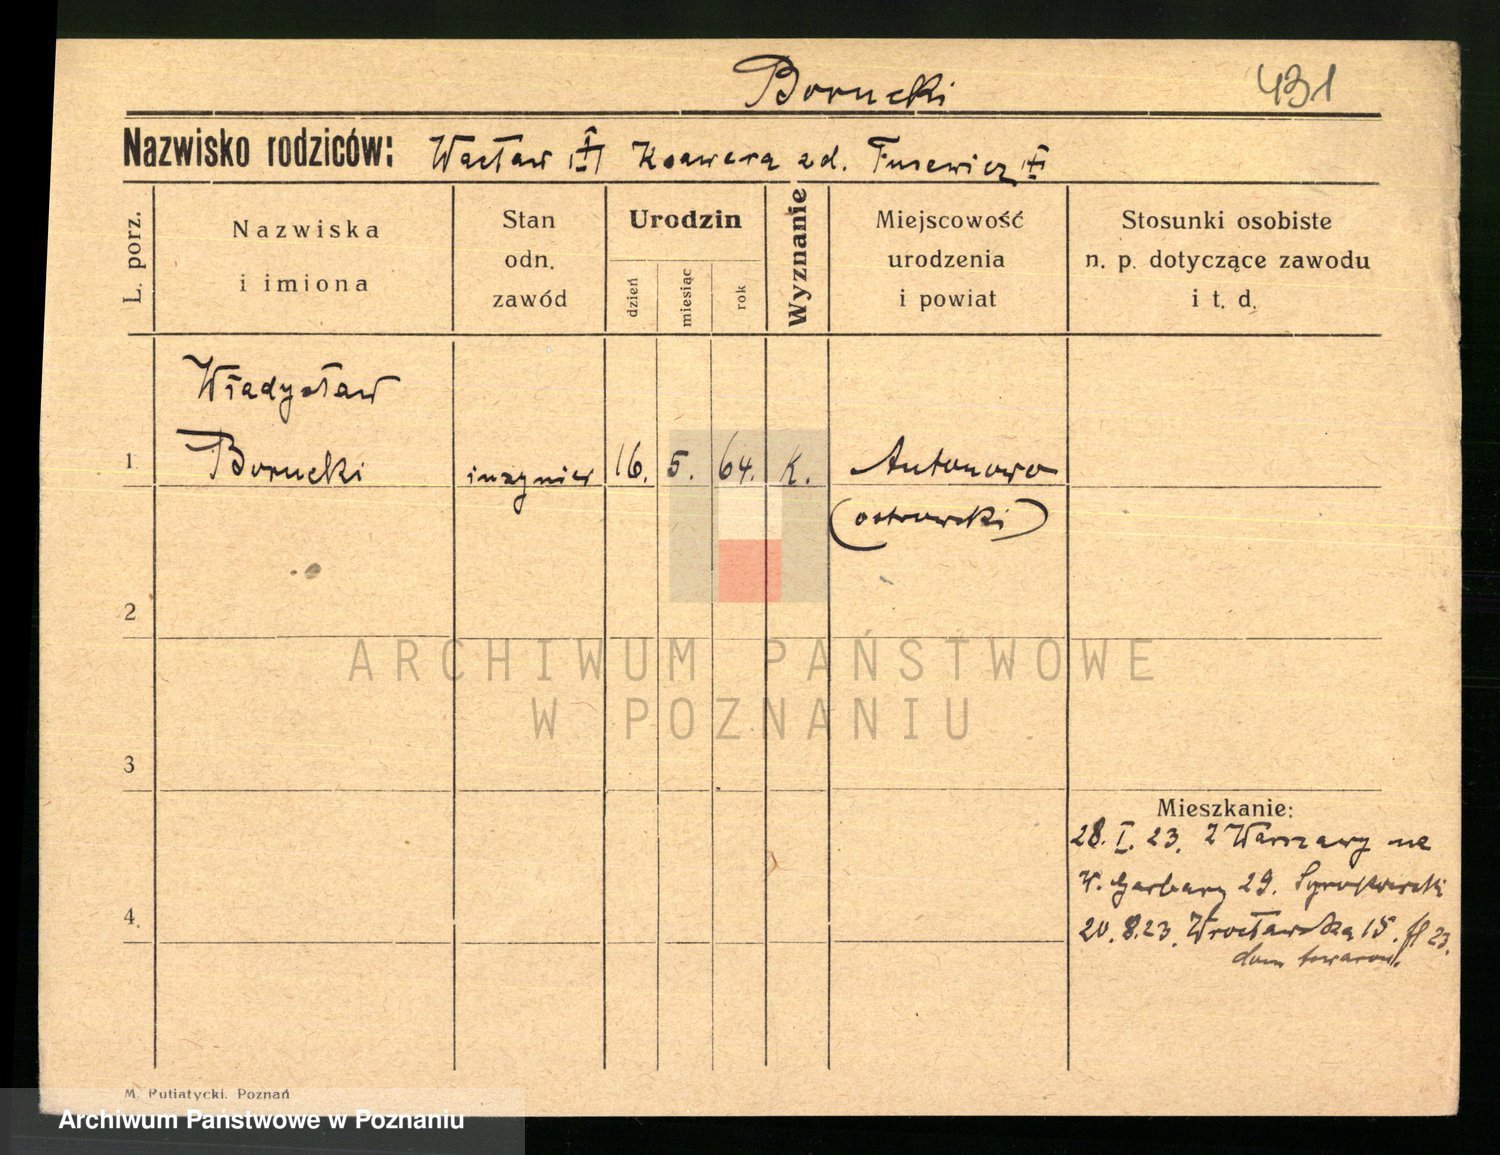 Borucki
431
Nazwisko rodziców: Wacław Ksawera zd.
L. porz.
Nazwiska
i imiona
Stan
odn.
zawód
Urodzin
dzień
miesiąc
rok
Wyznanie
Miejscowość
urodzenia
i powiat
Stosunki osobiste
n. p. dotyczące zawodu
i t. d.
Władysław
1 Borucki inżynier 16. 5. 64. K. Antonowo
(ostrowski)
2
ARCHIWUM PAŃSTWOWE
W POZNANIU
3
Mieszkanie:
28. I. 23. Z Warszawy na
W. Garbary 29.
4. 20. 8. 23. Wrocławska 15. 23.
dom towarow.
M. Putiatycki. Poznań
Archiwum Państwowe w Poznaniu